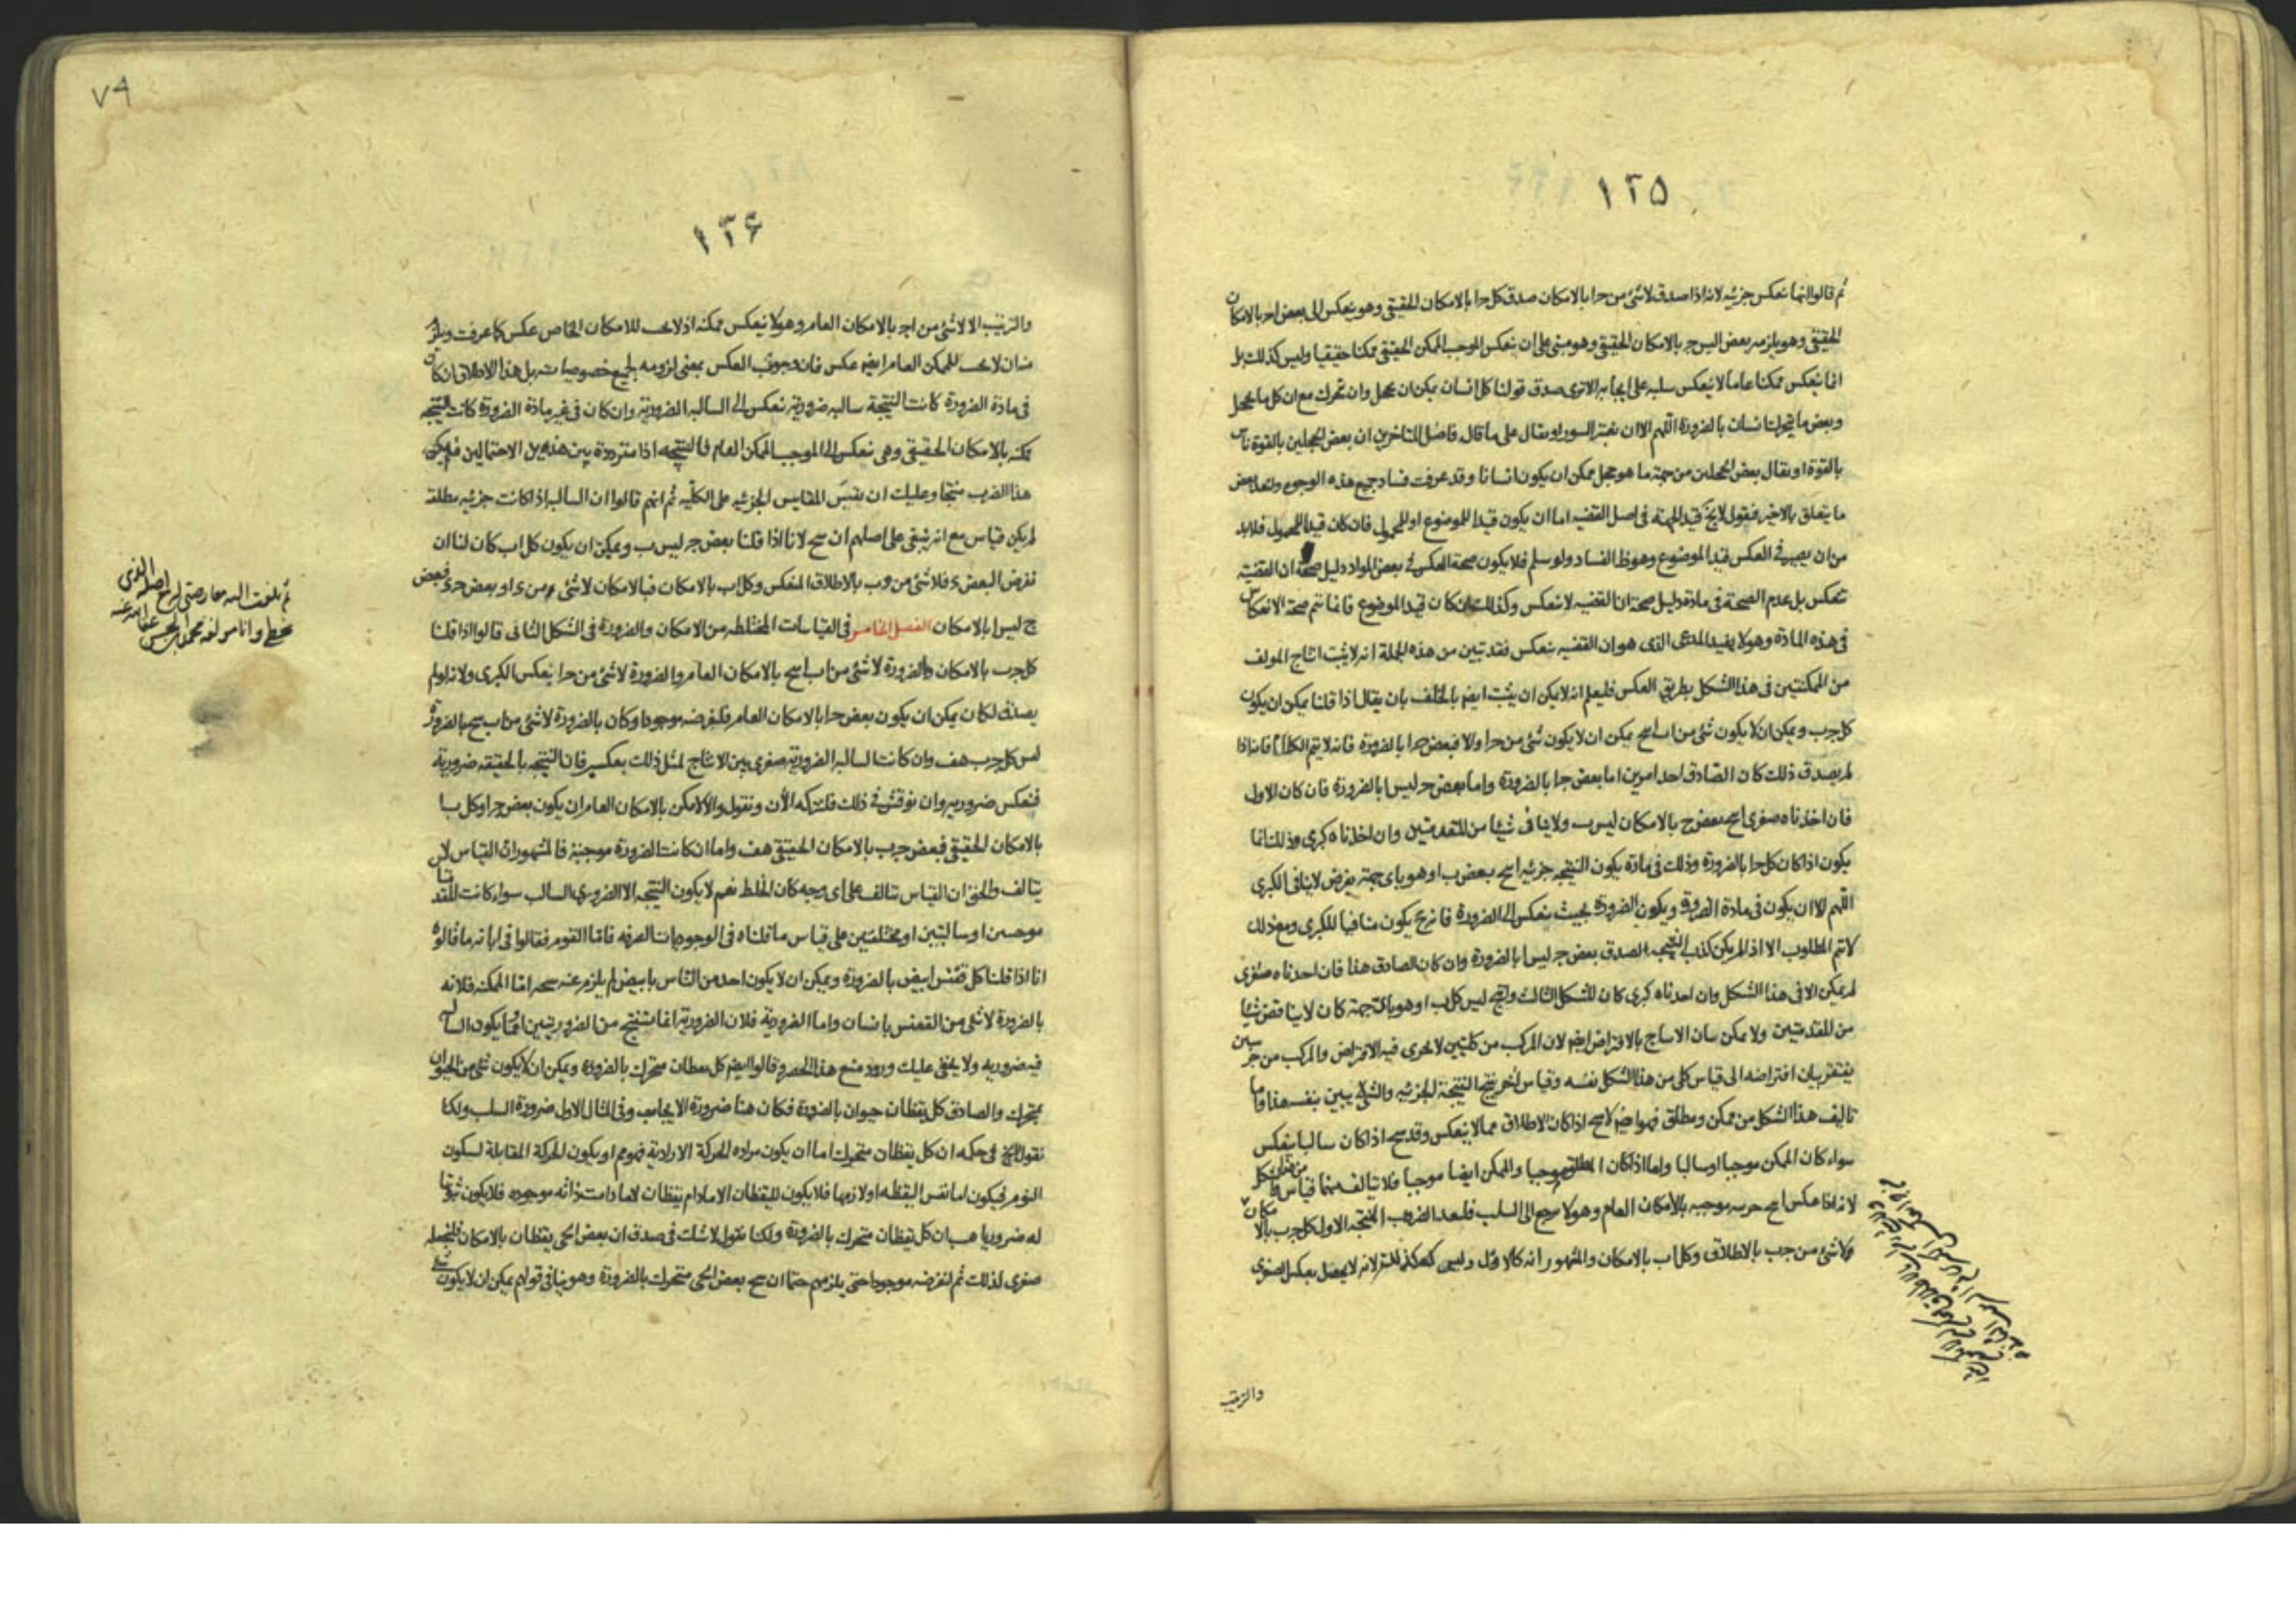 ١٢٥
ثم قالوا انها تنعكس جزئية لانه اذا صدق لا شئ من ج ا بالامكان صدق كل ج ا بالامكان الحقيقى وهو ينعكس الى بعض ا ج بالامكان
الحقيقى وهو يلزمه بعض ا ليس ج بالامكان الحقيقى وهو مبنى على ان ينعكس الموجب الممكن الحقيقى ممكنا حقيقيا وليس كذلك بل
انما ينعكس ممكنا عاما لا ينعكس سلبه على ايجابه الا ترى صدق قولنا كل انسان يمكن ان يخجل وان يتحرك مع ان كل ما يخجل
وبعض ما يتحرك انسان بالضرورة اللهم الا ان نغير السور او يقال على ما قال فاضل المتاخرين ان بعض الخجلين بالقوة ناس
بالقوة او يقال بعض الخجلين من جهة ما هو خجل يمكن ان يكون انسانا وقد عرفت فساد جميع هذه الوجوه
ما يتعلق بالاخير فنقول لا يخ قيد الجهة فى اصل القضيه اما ان يكون قيدا للموضوع او للمحمول فان كان قيدا للمحمول فلابد
من ان يصير فى العكس قيد الموضوع وهو ظ الفساد ولو سلم فلا يكون صحة العكس فى بعض المواد دليل صحة ان القضية
تنعكس بل عدم الصحة فى مادة دليل صحة ان القضيه لا تنعكس وكذلك ان كان قيد الموضوع فانما تتم صحة الانعكاس
فى هذه المادة وهو لا يفيد المدعى الذى هو ان القضيه تنعكس فقد تبين من هذه الجملة انه لا يثبت انتاج المولف
من الممكنتين فى هذا الشكل بطريق العكس فليعلم انه لا يمكن ان يثبت ايضا بالخلف بان يقال اذا قلنا يمكن ان يكون
كل ج ب ويمكن ان لا يكون شئ من ا ب انتج يمكن ان لا يكون شئ من ج ا والا فبعض ج ا بالضرورة فانه لا يتم الكلام فانه اذا
لم يصدق ذلك كان الصادق احد امرين اما بعض ج ا بالضرورة واما بعض ج ليس ا بالضرورة فان كان الاول
فان اخذناه صغرى انتج بعض ج بالامكان ليس ب ولا ينافى شيئا من المقدمتين وان اخذناه كبرى وذلك انما
يكون اذا كان كل ج ا بالضرورة وذلك فى مادة يكون النتيجه جزئيه انتج بعض ب ا وهو باى جهة يفرض لا ينافى الكبرى
اللهم الا ان يكون فى مادة الضرورة ويكون الضرورة بحيث ينعكس الى الضرورة فانه ح يكون منافيا للكبرى ومع ذلك
لا يتم المطلوب الا اذا لم يكن كذب النتيجه لصدق بعض ج ليس ا بالضرورة وان كان الصادق هذا فان اخذناه صغرى
لم يمكن الا فى هذا الشكل وان اخذناه كبرى كان الشكل الثالث وانتج ليس كل ب ا وهو باى جهة كان لا يناقض شيئا
من المقدمتين ولا يمكن بيان الانتاج بالافتراض ايضا لان المركب من كليتين لا يجرى فيه الافتراض والمركب من جزئيتين
يفتقر بيان افتراضه الى قياس كلى من هذا الشكل نفسه وقياس اخر ينتج النتيجة الجزئيه والشئ لا يبين بنفسه هذا واما
تاليف هذا الشكل من ممكن ومطلق فهو ايضا لا ينتج اذا كان الاطلاق مما لا ينعكس وقد ينتج اذا كان سالبا ينعكس
سواء كان الممكن موجبا او سالبا واما اذا كان المطلق موجبا والممكن ايضا موجبا فلا يتالف منهما قياس من هذا الشكل
لانه اذا عكس انتج جزئيه موجبه بالامكان العام وهو لا يرجع الى السلب فلنعد الضروب المنتجه الاول كل ج ب بالامكان
ولا شئ من ج ب بالاطلاق وكل ا ب بالامكان والمشهور انه كالاول وليس كذلك لانه لا يحصل بعكس الصغرى
والترتيب
٧٩
١٢۶
والترتيب الا لا شئ من ا ج بالامكان العام وهو لا ينعكس ممكنه اذ لا يجب للامكان الخاص عكس كما عرفت ويلزم
منه ان لا يجب للممكن العام ايضا عكس فان وجوب العكس بمعنى لزومه لجميع خصوصياته بل هذا الاطلاق ان كان
فى مادة الضرورة كانت النتيجة سالبه ضرورية تنعكس الى السالبه الضرورية وان كان فى غير مادة الضرورة كانت النتيجه
ممكنه بالامكان الحقيقى وهى تنعكس الى الموجب الممكن العام فالنتيجه اذا مترددة بين هذين الاحتمالين فلم يكن
هذا الضرب منتجا وعليك ان تقيس المقاييس الجزئيه على الكلّيه ثم انهم قالوا ان السالبه اذا كانت جزئيه مطلقه
لم يكن قياس مع انه ينبغى على اصلهم ان ينتج لانا اذا قلنا بعض ج ليس ب ويمكن ان يكون كل ا ب كان لنا ان
نفرض البعض ء فلا شئ من ء ب بالاطلاق المنعكس وكل ا ب بالامكان فبالامكان لا شئ من ء ا و بعض ج ء فبعض
ج ليس ا بالامكان الفصل الخامس فى القياسات المختلطه من الامكان والضرورة فى الشكل الثانى قالوا اذا قلنا
كل ج ب بالامكان وبالضرورة لا شئ من ا ب انتج بالامكان العام وبالضرورة لا شئ من ج ا بعكس الكبرى ولانه لو لم
يصدق لكان يمكن ان يكون بعض ج ا بالامكان العام فلنفرضه موجودا وكان بالضرورة لا شئ من ا ب ينتج بالضرورة
ليس كل ج ب هف وان كانت السالبه الضرورية صغرى بين الانتاج لمثل ذلك بعكسين فان النتيجه بالحقيقه ضرورية
فتعكس ضروريه وان نوقش فى ذلك فلنتركه الان ونقول والا لامكن بالامكان العام ان يكون بعض ج ا وكل ا ب
بالامكان الحقيقى فبعض ج ب بالامكان الحقيقى هف واما ان كانت الضرورة موجبة فالمشهور ان القياس لا
يتالف والحق ان القياس يتالف على اى وجه كان الخلط نعم لا يكون النتيجه الا الضرورى السالب سواء كانت المقدمتا
موجبتين او سالبتين او مختلفتين على قياس ما قلناه فى الوجوديات الصرفه فاما القوم فقالوا فى ابانة ما قالوه
انا اذا قلنا كل ققنس ابيض بالضرورة ويمكن ان لا يكون احد من الناس بابيض لم يلزم عنه نتيجه اما الممكنه فلانه
بالضرورة لا شئ من الققنس بانسان واما الضرورية فلان الضرورية انما تنتج من الضروريتين او ما يكون السالب
فيه ضروريه ولا يخفى عليك ورود منع هذا الحصر وقالوا ايضا كل يقظان متحرك بالضرورة ويمكن ان لا يكون شئ من الحيوان
بمتحرك والصادق كل يقظان حيوان بالضرورة فكان هنا ضرورة الايجاب وفى المثال الاول ضرورة السلب ولكنا
نقول الخ فى حكمه ان كل يقظان متحرك اما ان يكون مراده الحركة الارادية فهو مم او يكون الحركة المقابلة لسكون
النوم فيكون اما نفس اليقظه او لازمها فلا يكون لليقظان الا مادام يقظان لا ما دامت ذاته موجوده فلا يكون ثبوتها
له ضروريا هب ان كل يقظان متحرك بالضرورة ولكنا نقول لا شك فى صدق ان بعض الحى يقظان بالامكان فلنجعله
صغرى لذلك ثم نفرضه موجودا حتى يلزمهم حتما ان ينتج بعض الحى متحرك بالضرورة وهو ينافى قولهم يمكن ان لا يكون شئ